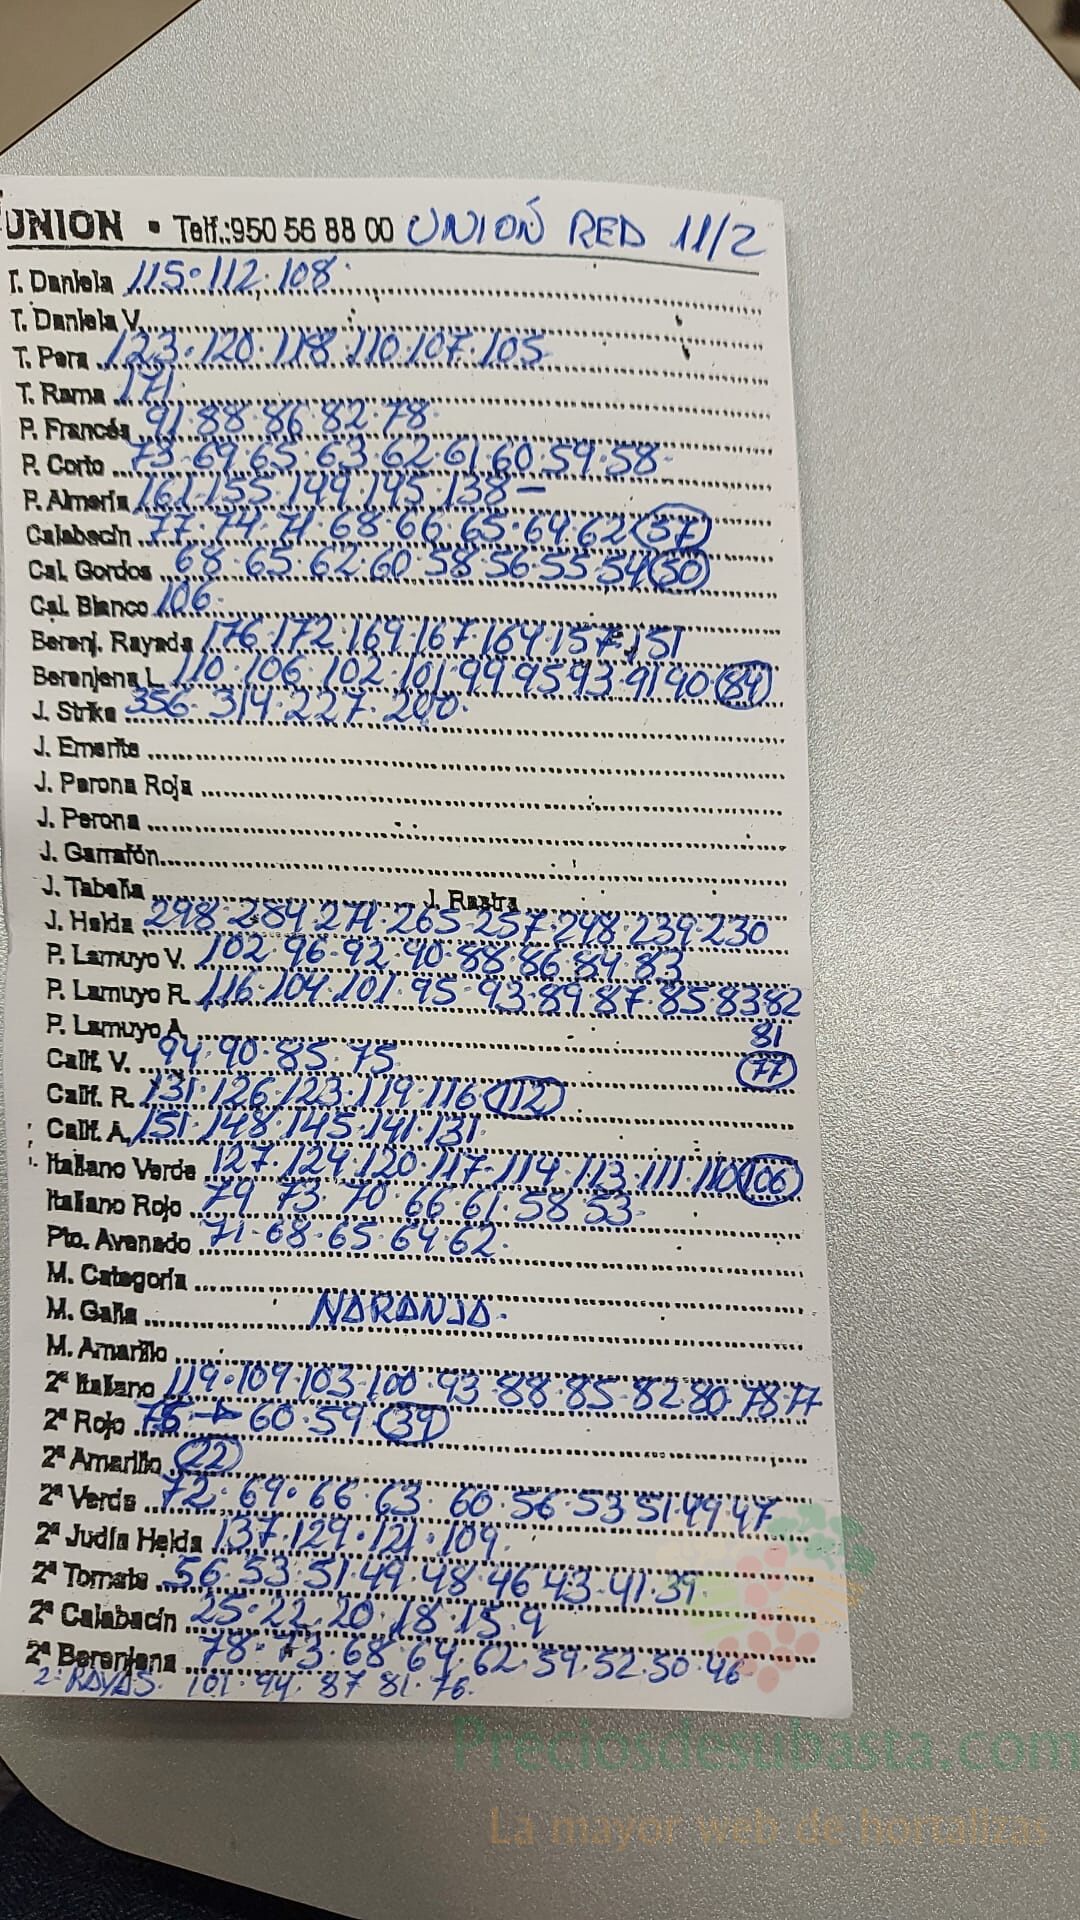 UNION • Telf.:950 56 88 00 UNIÓN RED 11/2
T. Daniela 115·112·108·
T. Daniela V.
T. Pera 123·120·118·110·107·105
T. Rama 171·
P. Francés 91·88·86·82·78·
P. Corto 73·69·65·63·62·61·60·59·58-
P. Almería 161·155·149·145·138-
Calabacín 77·74·71·68·66·65·64·62 (57)
Cal. Gordos 68·65·62·60·58·56·55·54 (50)
Cal. Blanco 106·
Berenj. Rayada 176·172·169·167·164·157·151
Berenjena L. 110·106·102·101·99·95·93·91·90·(84)
J. Strike 356·314·227·200·
J. Emerite
J. Perona Roja
J. Perona
J. Garrafón
J. Tabella J. Rastra
J. Helda 298·284·271·265·257·248·239·230
P. Lamuyo V. 102·96·92·90·88·86·84·83
P. Lamuyo R. 116·104·101·95·93·89·87·85·83·82
81
P. Lamuyo A.
(77)
Calif. V. 94·90·85·75·
Calif. R. 131·126·123·119·116 (112)
Calif. A. 151·148·145·141·131·
Italiano Verde 127·124·120·117·114·113·111·110 (106)
Italiano Rojo 79·73·70·66·61·58·53·
Pto. Avenado 71·68·65·64·62·
M. Categoría
M. Galia NARANJA·
M. Amarillo
2ª Italiano 119·109·103·100·93·88·85·82·80·78·77
2ª Rojo 75 → 60·59 (39)
2ª Amarillo (22)
2ª Verde 72·69·66·63·60·56·53·51·49·47
2ª Judía Helda 137·129·121·109·
2ª Tomate 56·53·51·49·48·46·43·41·39·
2ª Calabacín 25·22·20·18·15·9
2ª Berenjena 78·73·68·64·62·59·52·50·46
2ª RAYAS· 101·94·87·81·76·
Preciosdesubasta.com
La mayor web de hortalizas